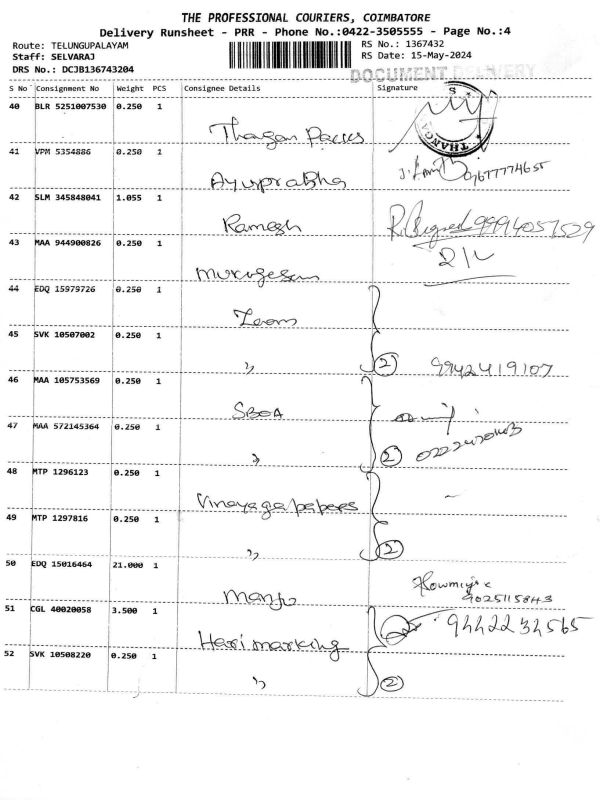 THE PROFESSIONAL COURIERS, COIMBATORE
Delivery Runsheet - PRR - Phone No.:0422-3505555 - Page No.:4
Route: TELUNGUPALAYAM RS No.: 1367432
Staff: SELVARAJ RS Date: 15-May-2024
DRS No.: DCJB136743204
DOCUMENT DELIVERY
S No Consignment No Weight PCS Consignee Details Signature
40 BLR 5251007530 0.250 1
Thangam Packs THANGA
41 VPM 5354886 0.250 1
Ayurprabha 9677774655
42 SLM 345848041 1.055 1
Ramesh 9994057529
43 MAA 944900826 0.250 1
Murugesan
44 EDQ 15979726 0.250 1
45 SVK 10507002 0.250 1
" 2 9942419107
46 MAA 105753569 0.250 1
SBOA
47 MAA 572145364 0.250 1
" 2
48 MTP 1296123 0.250 1
Vinayaga papers
49 MTP 1297816 0.250 1
" 2
50 EDQ 15016464 21.000 1
Manju 9025115843
51 CGL 40020058 3.500 1
Hari marking 9442234565
52 SVK 10508220 0.250 1
" 2